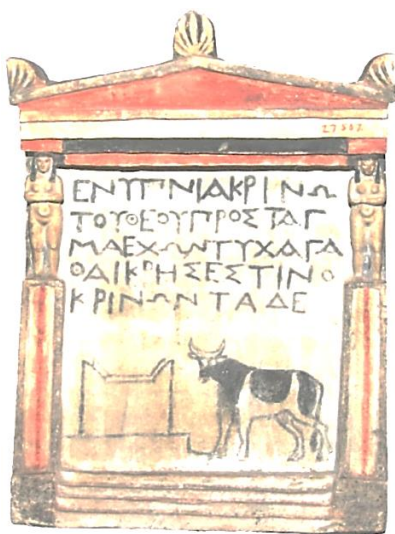 27567
ΕΝΥΠΝΙΑΚΡΙΝΩ
ΤΟΥΘΕΟΥΠΡΟΣΤΑΓ
ΜΑΕΧΩΝΤΥΧΑΓΑ
ΘΑΙΚΡΗΣΕΣΤΙΝΟ
ΚΡΙΝΩΝΤΑΔΕ